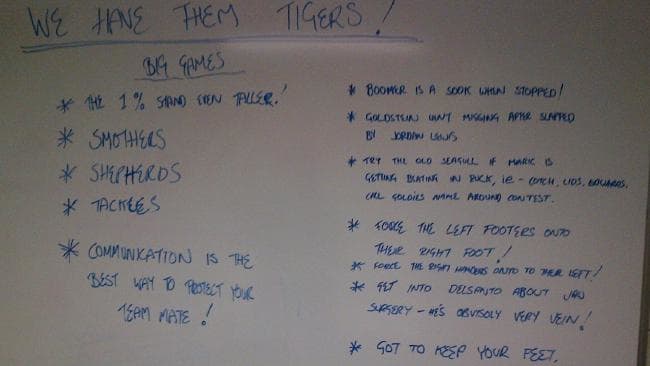 WE HAVE THEM TIGERS!
BIG GAMES
* THE 1% STAND EVEN TALLER!
* SMOTHERS
* SHEPHERDS
* TACKLES
* COMMUNICATION IS THE
BEST WAY TO PROTECT YOUR
TEAM MATE!
* BOOMER IS A SOOK WHEN STOPPED!
* GOLDSTEIN WENT MISSING AFTER SLAPPED
BY JORDAN LEWIS
* TRY THE OLD SEAGULL IF MARIC IS
GETTING BEATING IN RUCK, ie - COTCH, LIDS, EDWARDS,
CALL GOLDIES NAME AROUND CONTEST.
* FORCE THE LEFT FOOTERS ONTO
THEIR RIGHT FOOT!
* FORCE THE RIGHT HANDERS ONTO TO THEIR LEFT!
* GET INTO DELSANTO ABOUT JAW
SURGERY - HE'S VERY VEIN!
* GOT TO KEEP YOUR FEET.